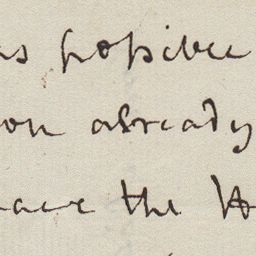 as possible
on already
have the H